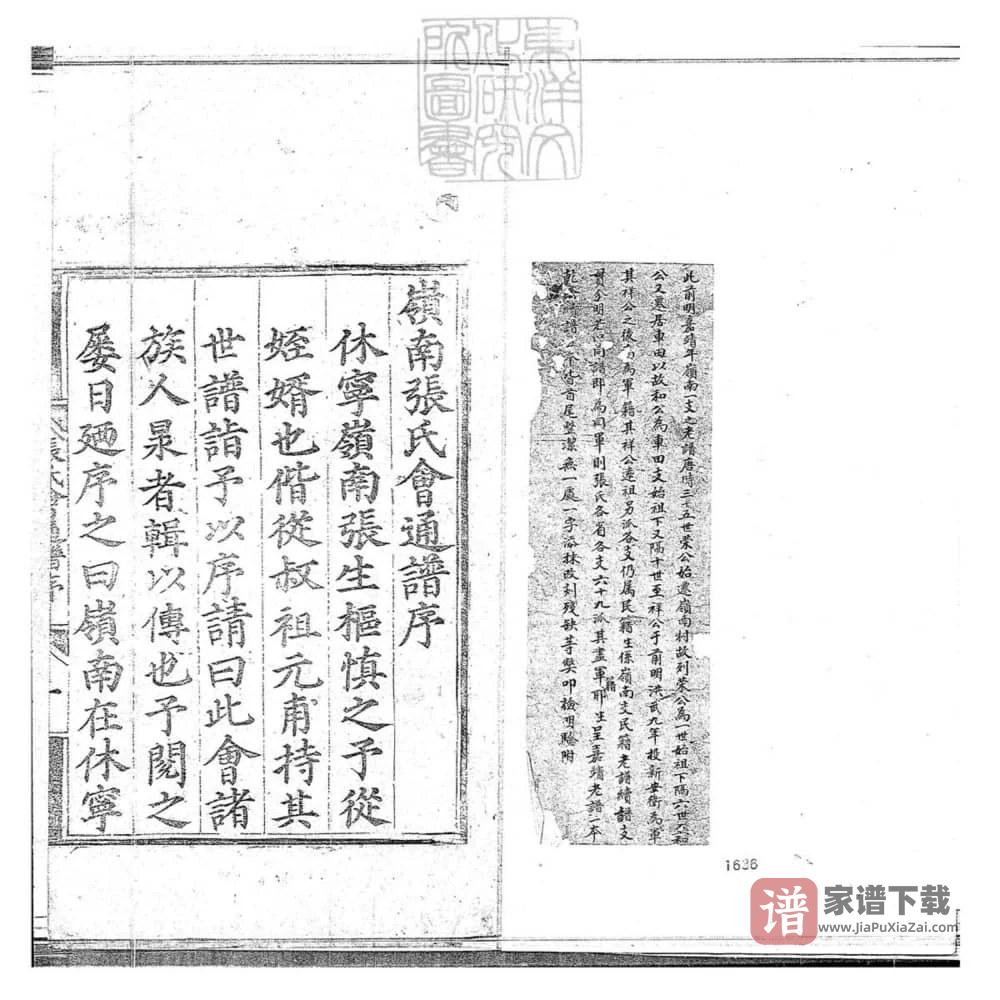 東洋文
化研究
所圖書
此前明嘉靖年嶺南一支之老譜唐時三十五世葉公始遷嶺南村故列葉公為一世始祖下隔六世六和
公又遷居車田以故和公為車田支始祖下又隔十世至祥公于前明洪武九年投新安衛為軍
其祥公之後為軍籍其祥公遠祖另派各支仍属民籍生係嶺南支民籍老譜續譜支
分明若向譜即為同軍則張氏各省各支六十九派其盡軍籍耶生呈嘉靖老譜一本
譜一本皆首尾整潔無一處一字添抹改刻殘缺等獘叩檢明驗附
嶺南張氏會通譜序
休寧嶺南張生樞慎之予從
姪婿也偕從叔祖元甫持其
世譜詣予以序請曰此會諸
族人泉者輯以傳也予閱之
屡日廼序之曰嶺南在休寧
張氏會通譜序
一
1636
谱 家谱下载
www.JiaPuXiaZai.com